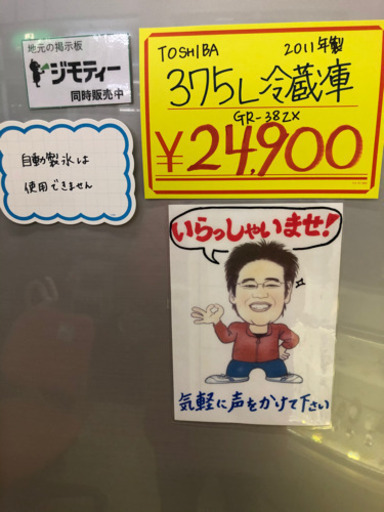 地元の掲示板
ジモティー
同時販売中
TOSHIBA 2011年製
375L冷蔵庫
GR-38ZX
¥24,900
自動製氷は
使用できません
いらっしゃいませ!
気軽に声をかけて下さい